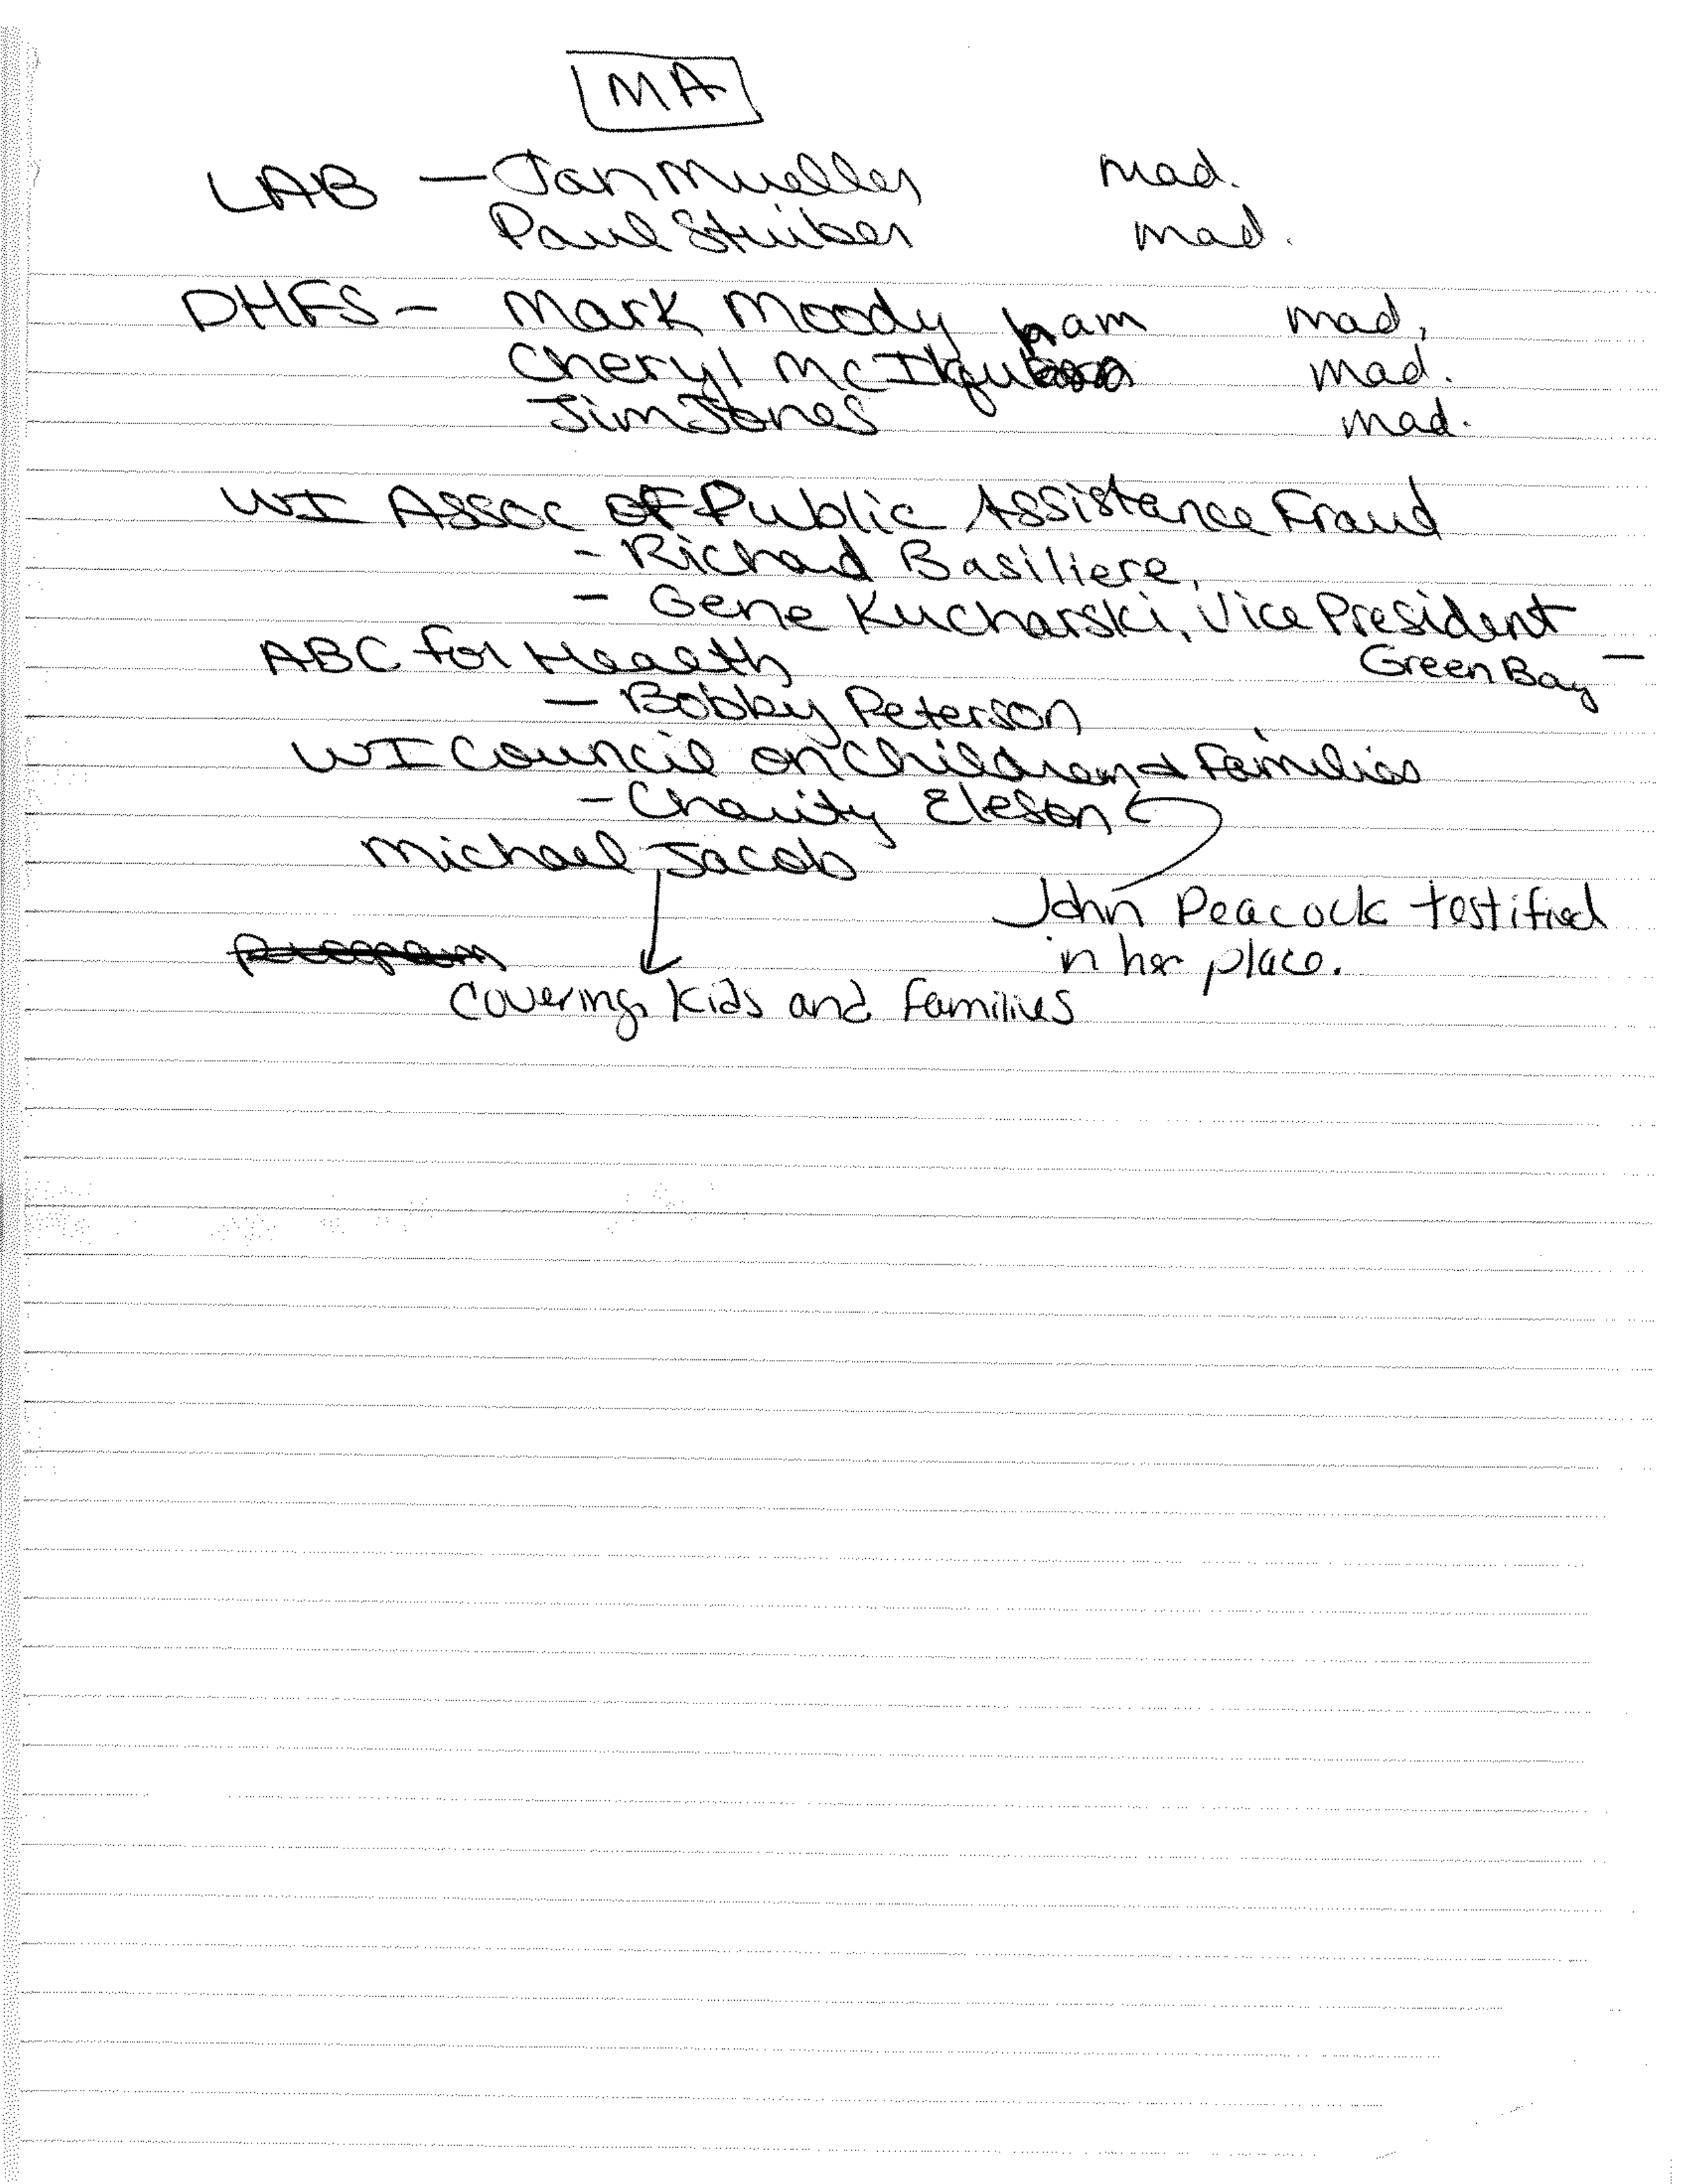 MA
LAB — Jan Mueller mad.
Paul Stuiber mad.
DHFS - Mark Moody mad.
Cheryl McIlquham mad.
Jim Jones mad.
WI Assoc of Public Assistance Fraud
- Richard Basiliere,
- Gene Kucharski, Vice President
Green Bay —
ABC for Health
— Bobby Peterson
WI Council on Children and Families
- Charity Eleson
Michael Jacob
John Peacock testified
in her place.
Covering Kids and Families